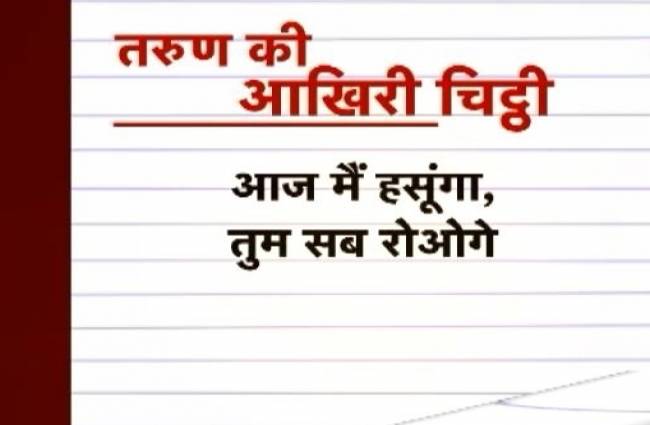 तरुण की
आखिरी चिट्ठी
आज मैं हसूंगा,
तुम सब रोओगे